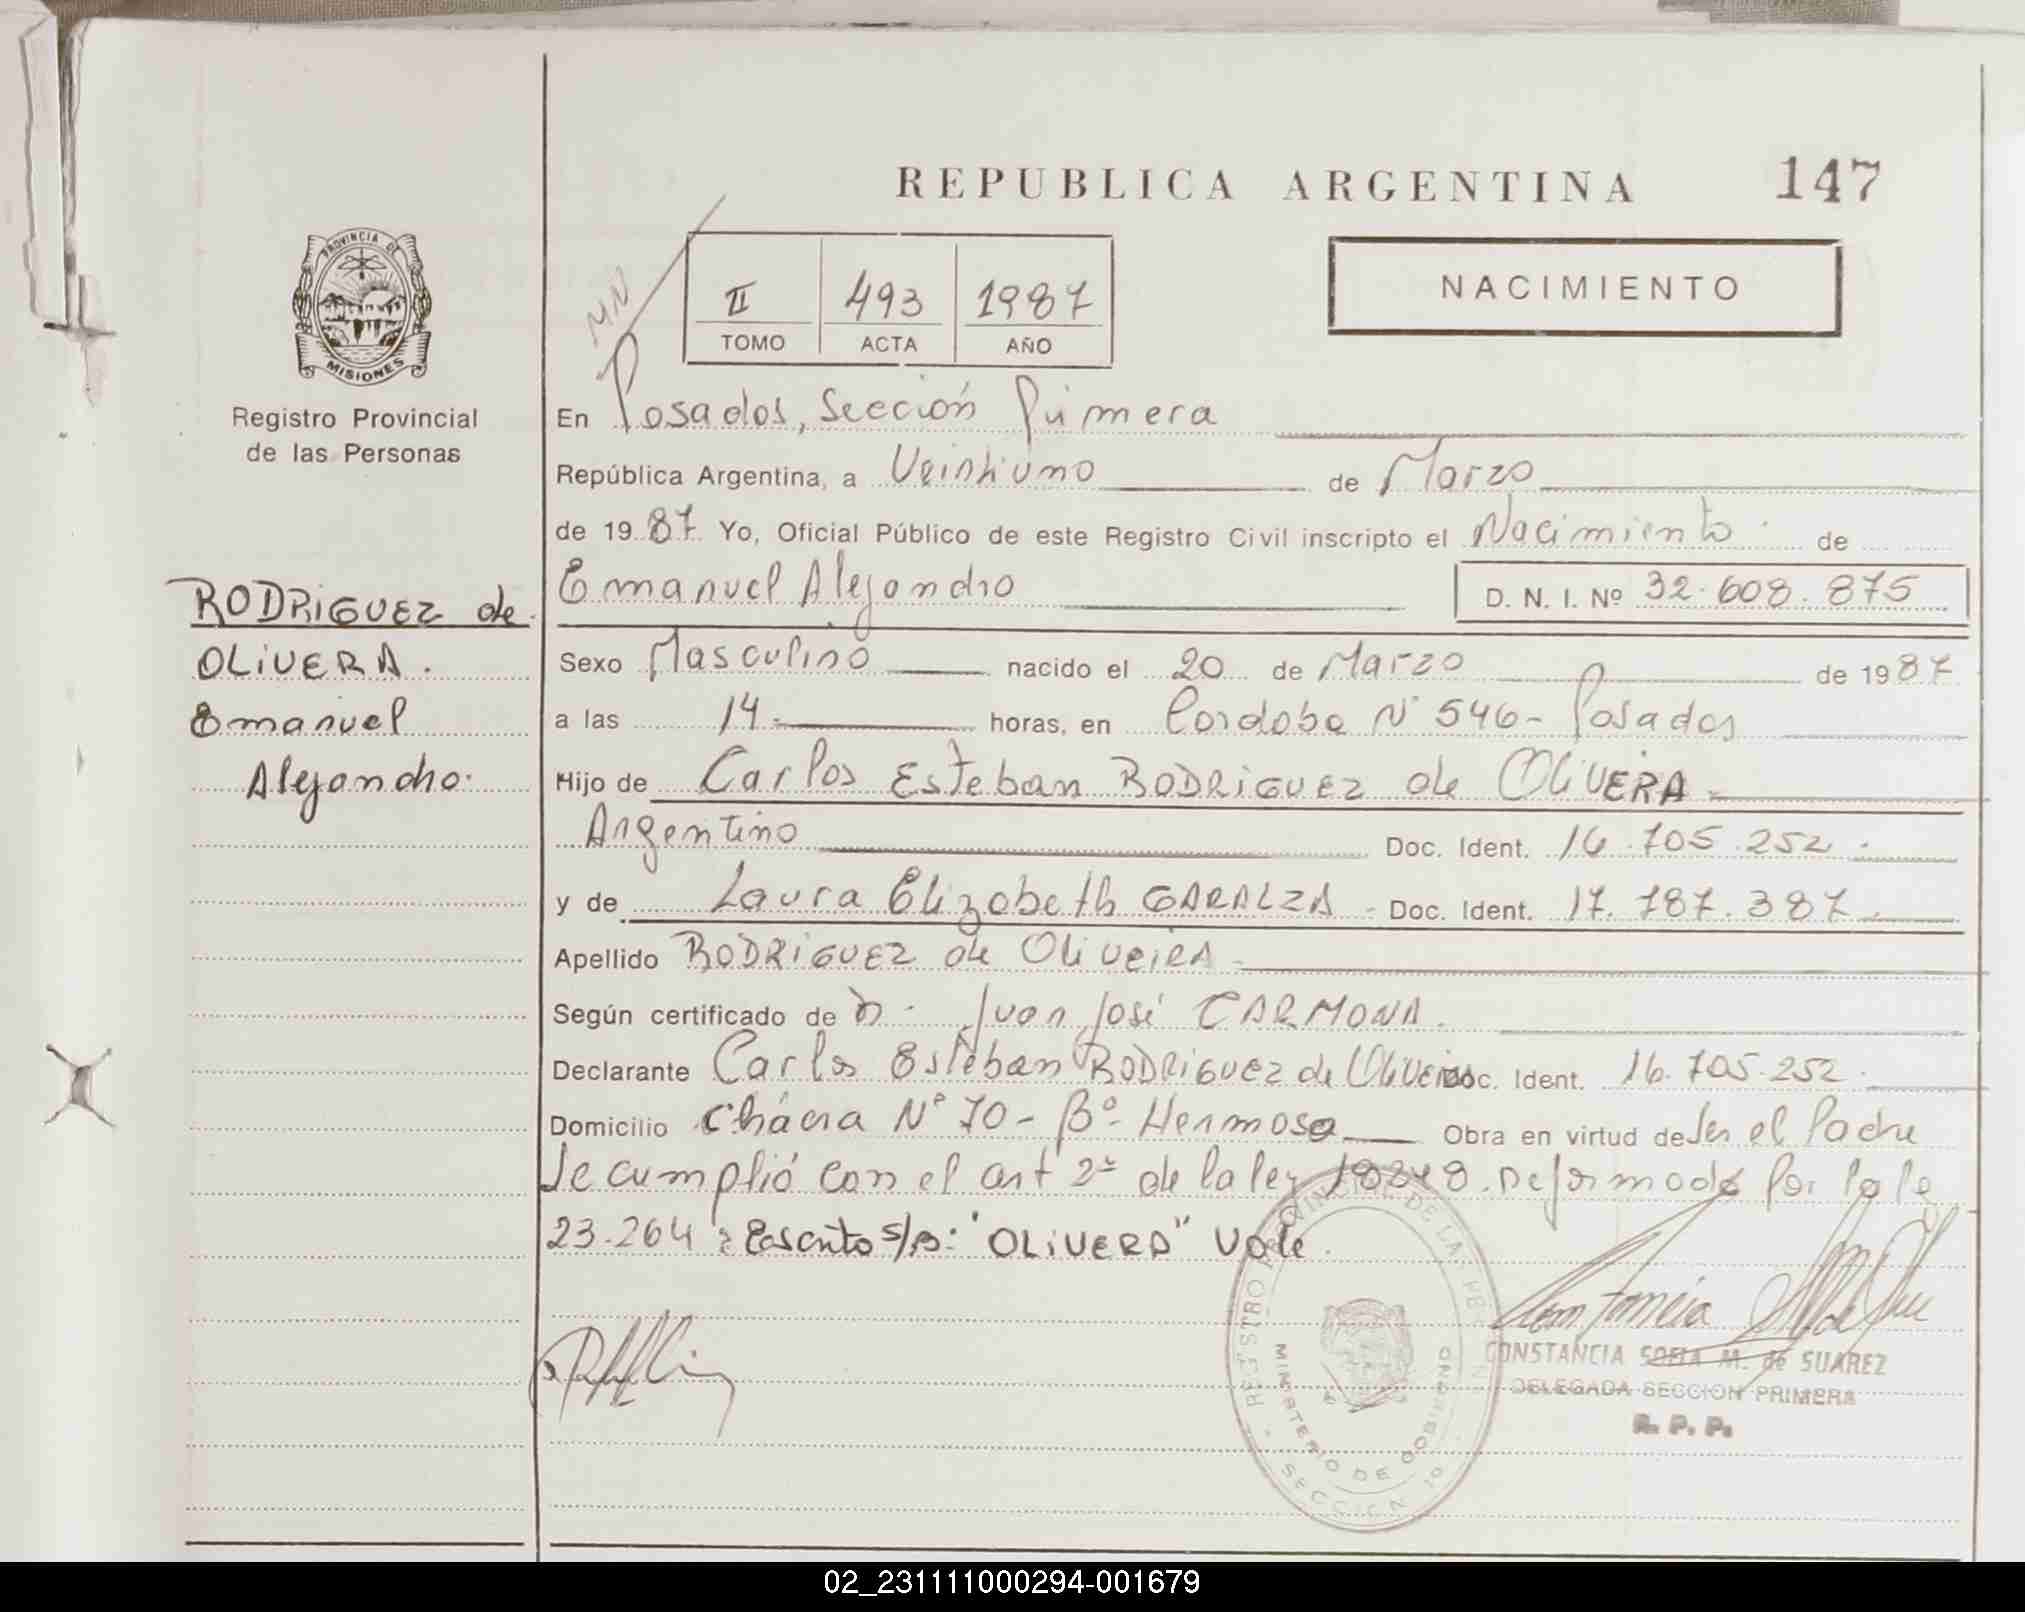 REPUBLICA ARGENTINA 147
PROVINCIA DE
MISIONES
Registro Provincial
de las Personas
MN
II 493 1987
TOMO ACTA AÑO
NACIMIENTO
En Posadas, Sección Primera
República Argentina, a Veintiuno de Marzo
de 1987. Yo, Oficial Público de este Registro Civil inscripto el Nacimiento de
Emanuel Alejandro D. N. I. Nº 32.608.875
RODRIGUEZ de
OLIVERA.
Emanuel
Alejandro.
Sexo Masculino nacido el 20 de Marzo de 1987
a las 14 horas, en Cordoba Nº 546 - Posadas
Hijo de Carlos Esteban RODRIGUEZ de OLIVERA
Argentino Doc. Ident. 16.705.252.
y de Laura Elizabeth GARALZA - Doc. Ident. 17.787.387.
Apellido RODRIGUEZ de Oliveira
Según certificado de D. Juan José CARMONA.
Declarante Carlos Esteban RODRIGUEZ de Oliveira Doc. Ident. 16.705.252.
Domicilio Chacra Nº 70 - Bº Hermoso Obra en virtud de Ser el Padre
Se cumplió con el art 2º de la ley 18248. Reformado por la ley
23.264: Escrito s/B: "OLIVERA" Vale.
REGISTRO PROVINCIAL DE LAS PERSONAS
MINISTERIO DE GOBIERNO
SECCION 1º
CONSTANCIA SOFIA M. de SUAREZ
DELEGADA SECCION PRIMERA
R. P. P.
02_231111000294-001679